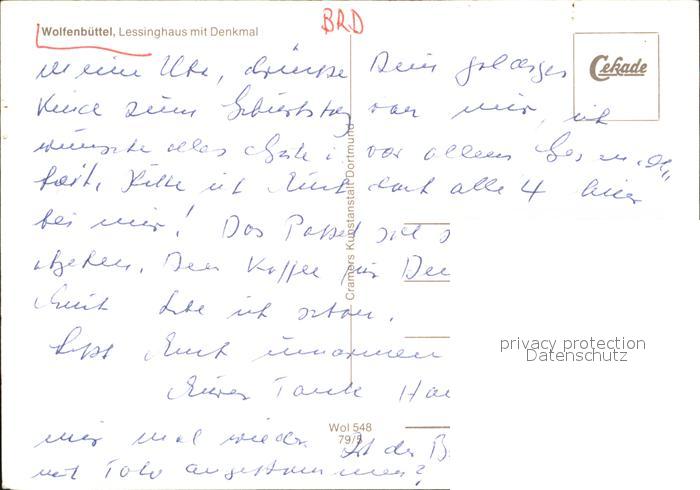 BRD
Wolfenbüttel, Lessinghaus mit Denkmal
Cekade
Meine Ute, drücke Dein goldiges
Kind zum Geburtstag von mir, ich
wünsche alles Gute u. vor allem Gesund„
heit. Hätte ich Euch doch alle 4 hier
bei mir! Das Paket soll
abgehen. Den Kaffee für
Euch habe ich schon.
Lasst Euch umarmen
Eure Tante
mir mal wieder. Ist der
mit Foto angekommen?
Cramers Kunstanstalt Dortmund
Wol 548
79/5
privacy protection
Datenschutz